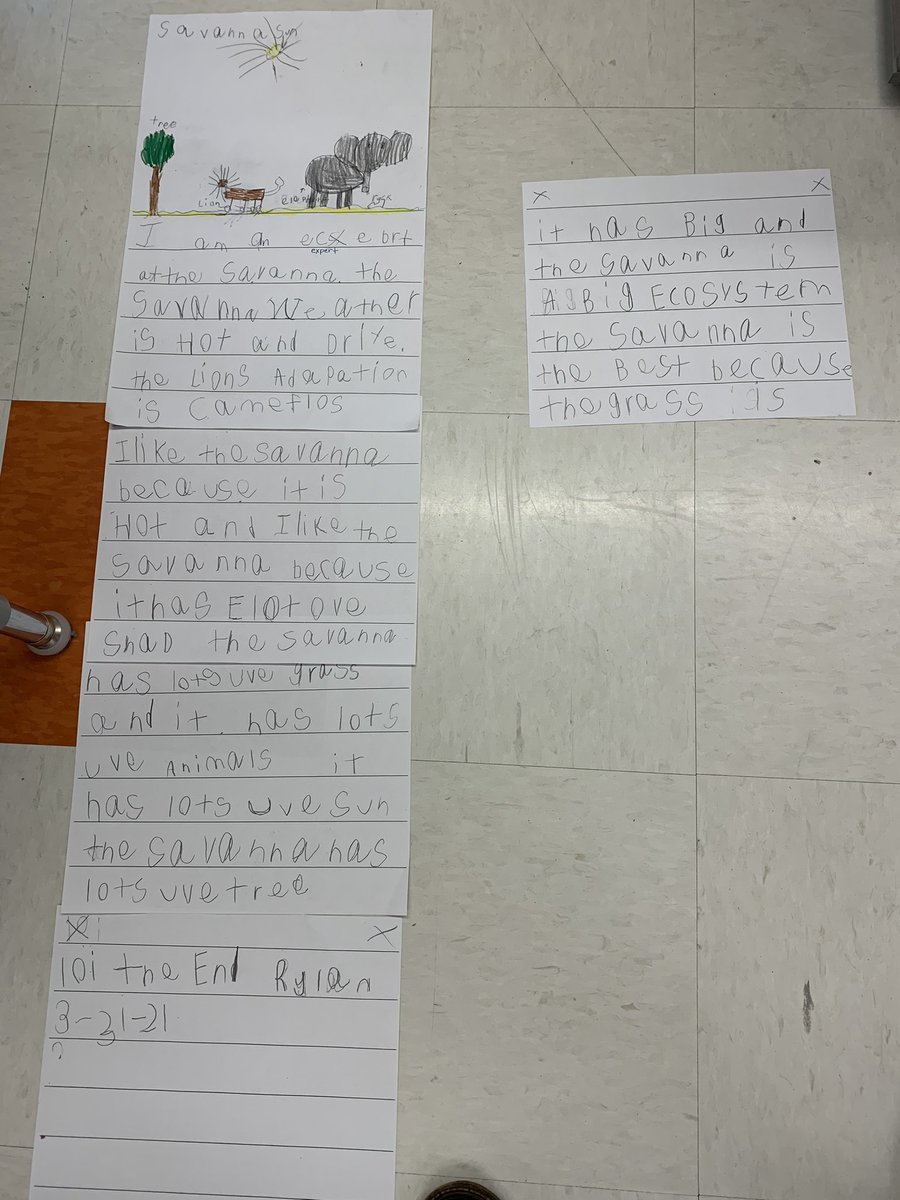 Savanna Sun
tree
Lion
I am an ecxebrt
expert
at the Savanna. the
Savanna Weather
is Hot and Driye.
the Lions Adapation
is Cameflos
I like the savanna
because it is
Hot and I like the
savanna because
it has Elot ove
Shad the savanna
has lots uve grass
and it has lots
uve Animals it
has lots uve sun
the savanna has
lots uve tree
the End Rylan
3-21-21
x x
it has Big and
the savanna is
Big Ecosystem
the Savanna is
the Best because
the grass is